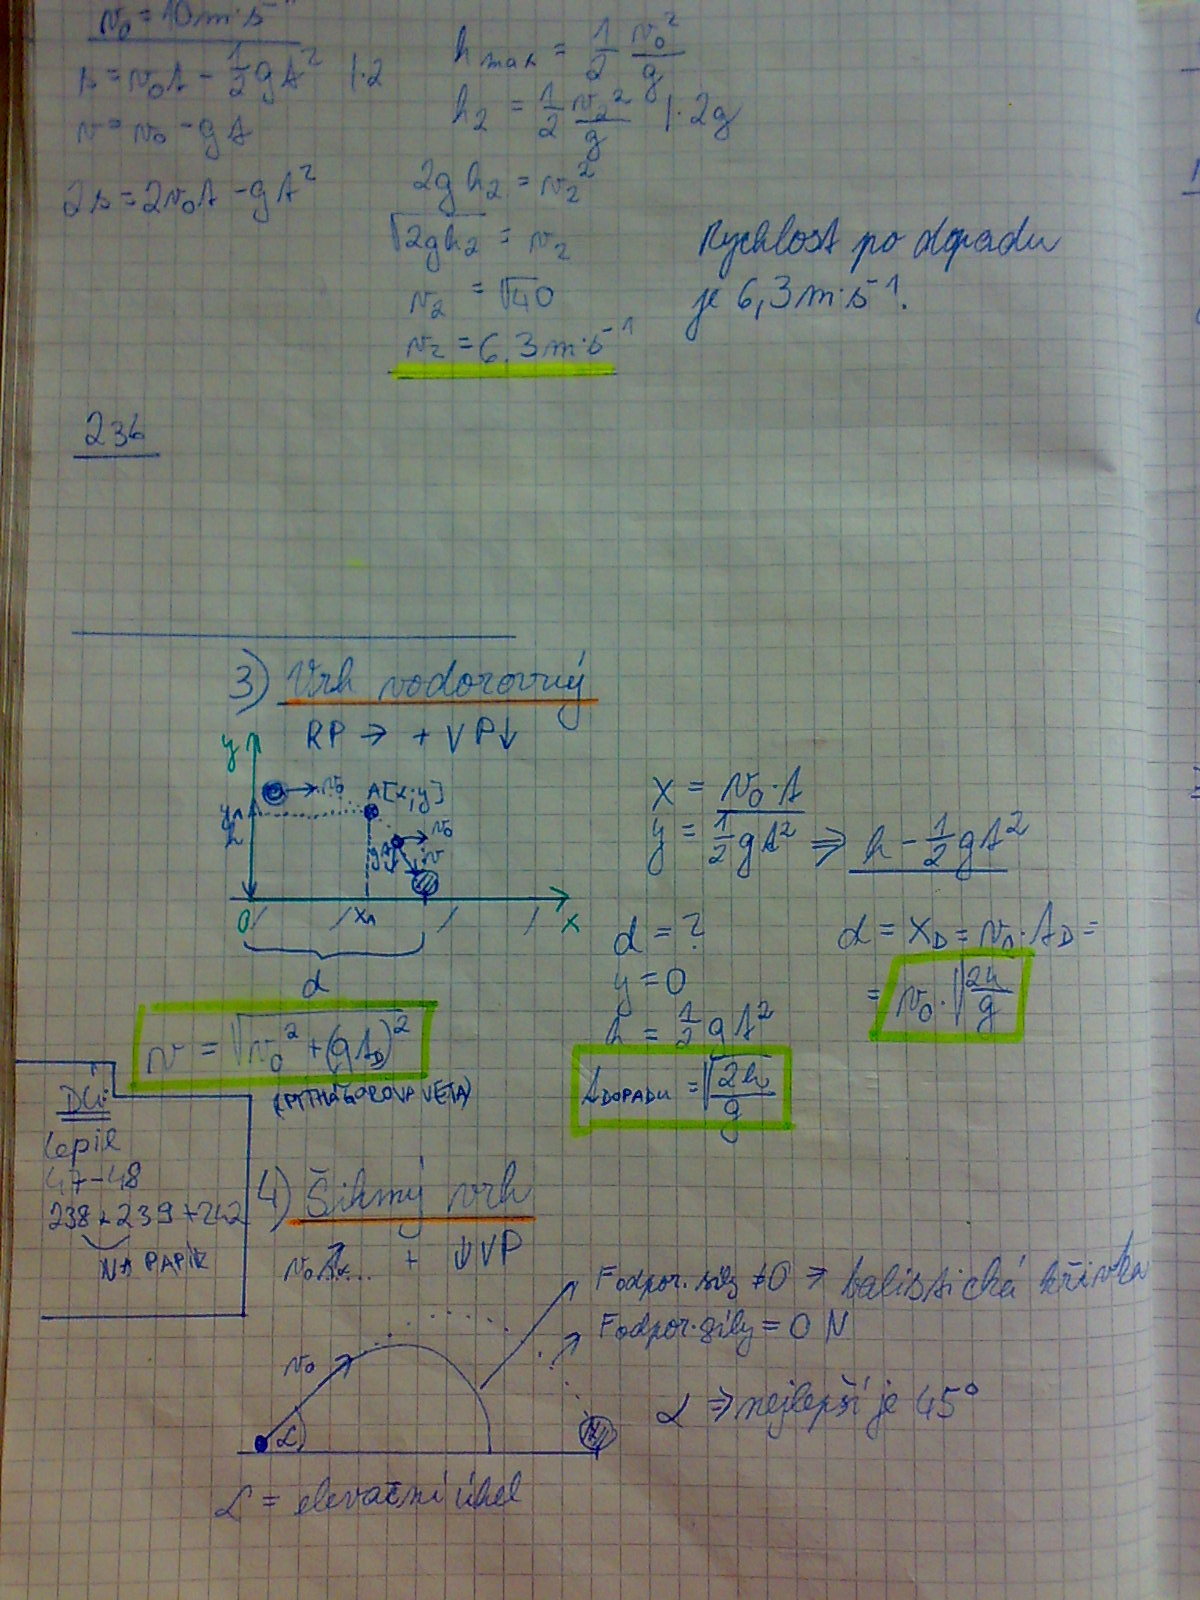 v₀ = 10 m·s⁻¹
s = v₀t - 1/2 gt² |·2
v = v₀ - gt
2s = 2v₀t - gt²
h max = 1/2 v₀²/g
h₂ = 1/2 v₂²/g |·2g
2gh₂ = v₂²
√2gh₂ = v₂
v₂ = √40
v₂ = 6,3 m·s⁻¹
Rychlost po dopadu
je 6,3 m·s⁻¹.
236
3) Vrh vodorovný
RP → + VP↓
y
v₀
A[x;y]
yA
h
v₀
gt
v
0
xA
x
d
x = v₀·t
y = 1/2 gt² ⇒ h - 1/2 gt²
d = ?
y = 0
h = 1/2 gt²
t DOPADU = √2h/g
d = xD = v₀·tD =
= v₀·√2h/g
v = √v₀² + (gtD)²
(PYTHAGOROVA VĚTA)
DÚ:
Lepil
47-48
238+239+242
NA PAPÍR
4) Šikmý vrh
v₀ ↗ α... + ↓VP
Fodpor. síly ≠ 0 ⇒ balistická křivka
Fodpor. síly = 0 N
v₀
α
α ⇒ nejlepší je 45°
α = elevační úhel